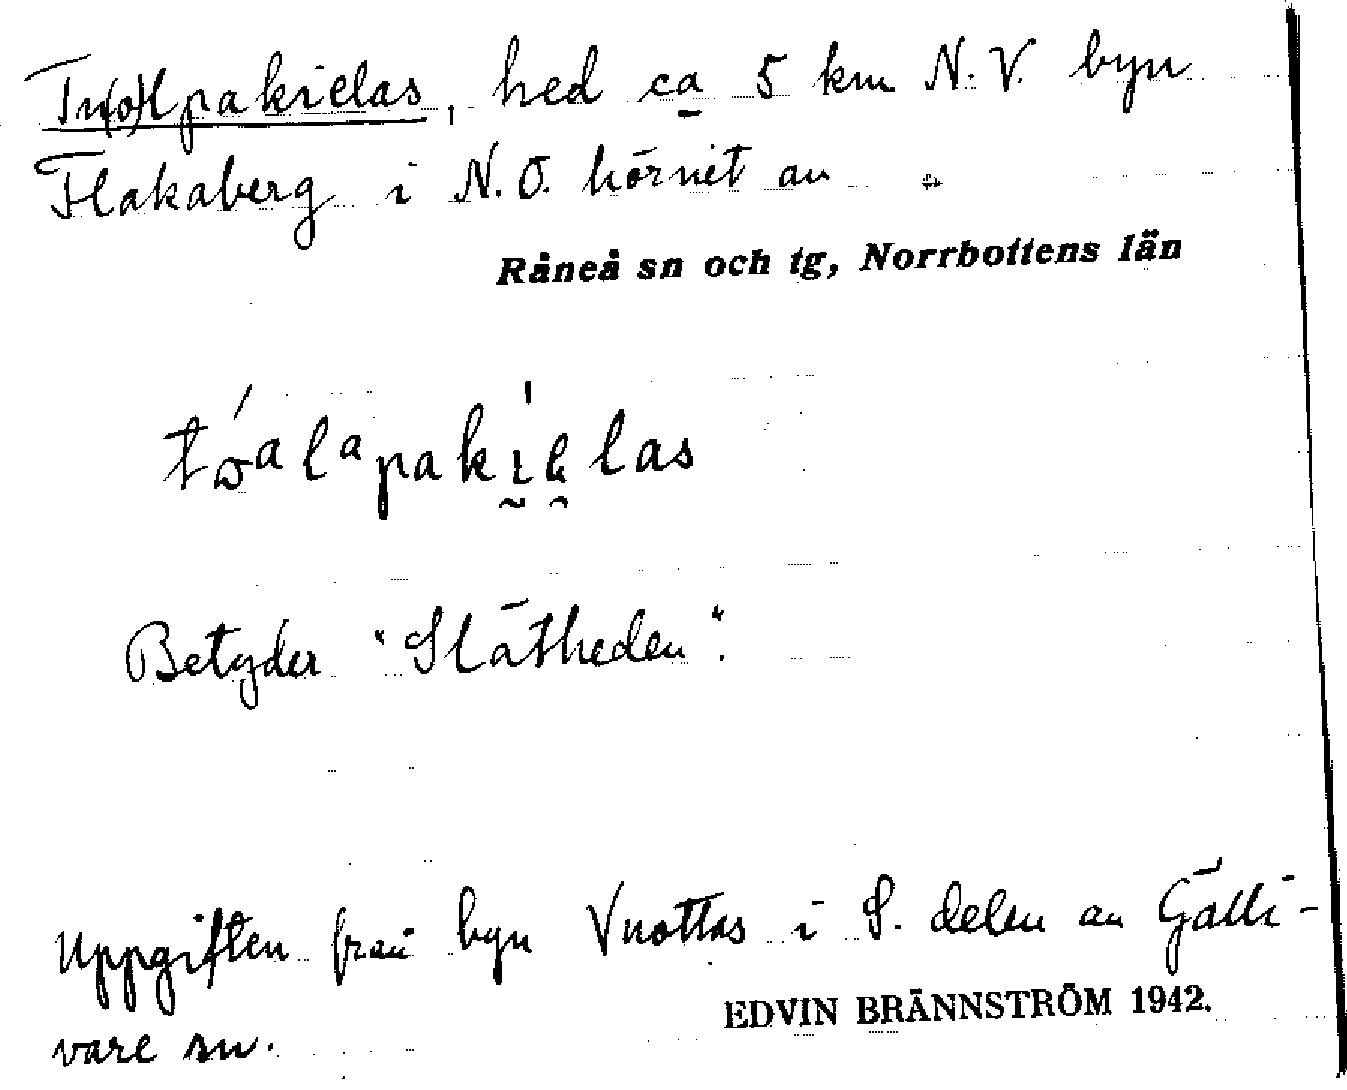 Tu(o)lpakielas, hed ca 5 km N.V. byn
Flakaberg i N.Ö. hörnet av
Råneå sn och tg, Norrbottens län
pakielas
Betyder "Slätheden".
Uppgiften från byn Vuottas i S. delen av Gälli-
vare sn.
EDVIN BRÄNNSTRÖM 1942.